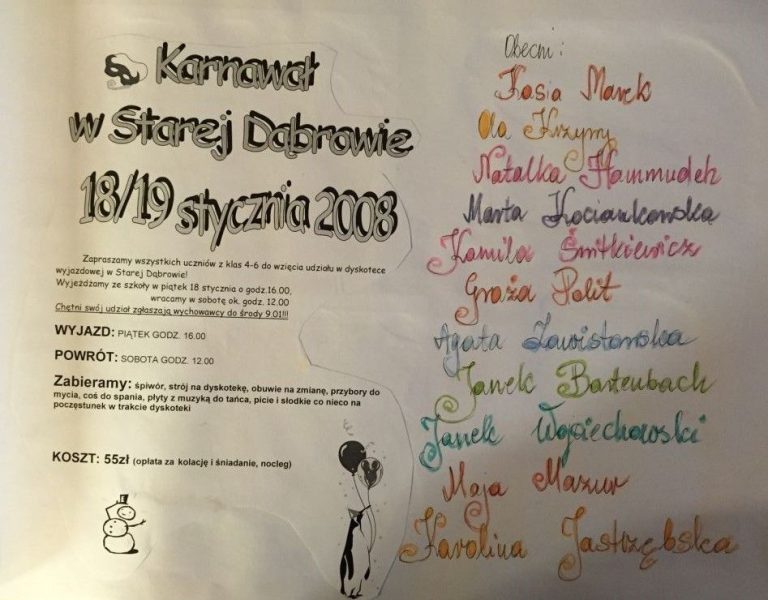 Karnawał
w Starej Dąbrowie
18/19 stycznia 2008
Zapraszamy wszystkich uczniów z klas 4-6 do wzięcia udziału w dyskotece
wyjazdowej w Starej Dąbrowie!
Wyjeżdżamy ze szkoły w piątek 18 stycznia o godz.16.00,
wracamy w sobotę ok. godz. 12.00
Chętni swój udział zgłaszają wychowawcy do środy 9.01!!!
WYJAZD: PIĄTEK GODZ. 16.00
POWRÓT: SOBOTA GODZ. 12.00
Zabieramy: śpiwór, strój na dyskotekę, obuwie na zmianę, przybory do
mycia, coś do spania, płyty z muzyką do tańca, picie i słodkie co nieco na
poczęstunek w trakcie dyskoteki
KOSZT: 55zł (opłata za kolację i śniadanie, nocleg)
Obecni:
Kasia Marek
Ola Krzymy
Natalka Hammudeh
Marta Kociankowska
Kamila Śmitkiewicz
Grażka Polit
Agata Zawistowska
Janek Bartenbach
Janek Wojciechowski
Maja Mazur
Karolina Jastrzębska